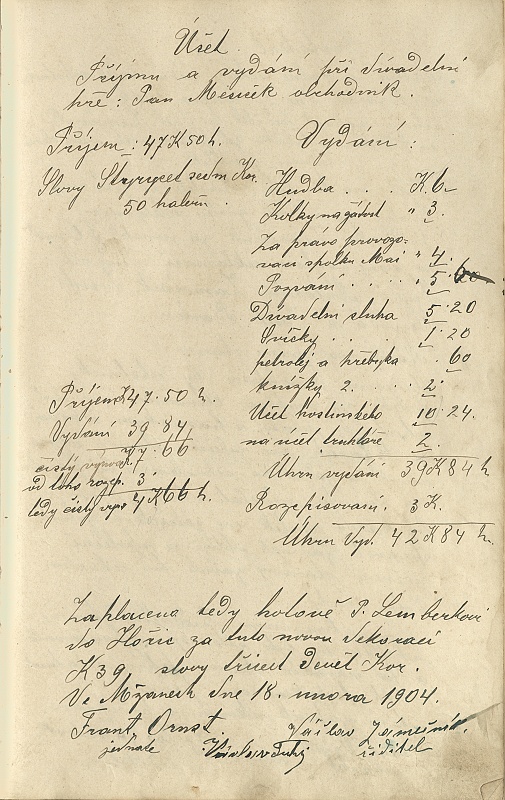 Účet
Příjmu a vydání při divadelní
hře: Pan Měsíček obchodník.
Příjem: 47 K 50 h.
Slovy Štyrycet sedm Kor.
50 haléřů.
Vydání:
Hudba . . . K 6.-
Kolky na žádost " 3.
Za právo provozo-
vací spolku Máj " 4.
Pozvání . . . . " 5.
Divadelní sluha 5.20
Svíčky . . . 1.20
petrolej a hřebíka .60
knížky 2. . . . 2.
Účet hostinského 10.24.
na účet truhláře 2.
Úhrn vydání 39 K 84 h
Rozepisování. 3 K.
Úhrn Vyd. 42 K 84 h.
Příjem K 47.50 h.
Vydání 39 84
čistý výnos 7 66
od toho rozep. 3
tedy čistý 4 K 66 h.
Zaplacena tedy hotově P. Lemberkovi
do Hořic za tuto novou dekoraci
K 39 slovy třicet devět Kor.
Ve Mžanech dne 18. února 1904.
Frant. Ornst
jednatel
Václav
Václav Zámečník
ředitel